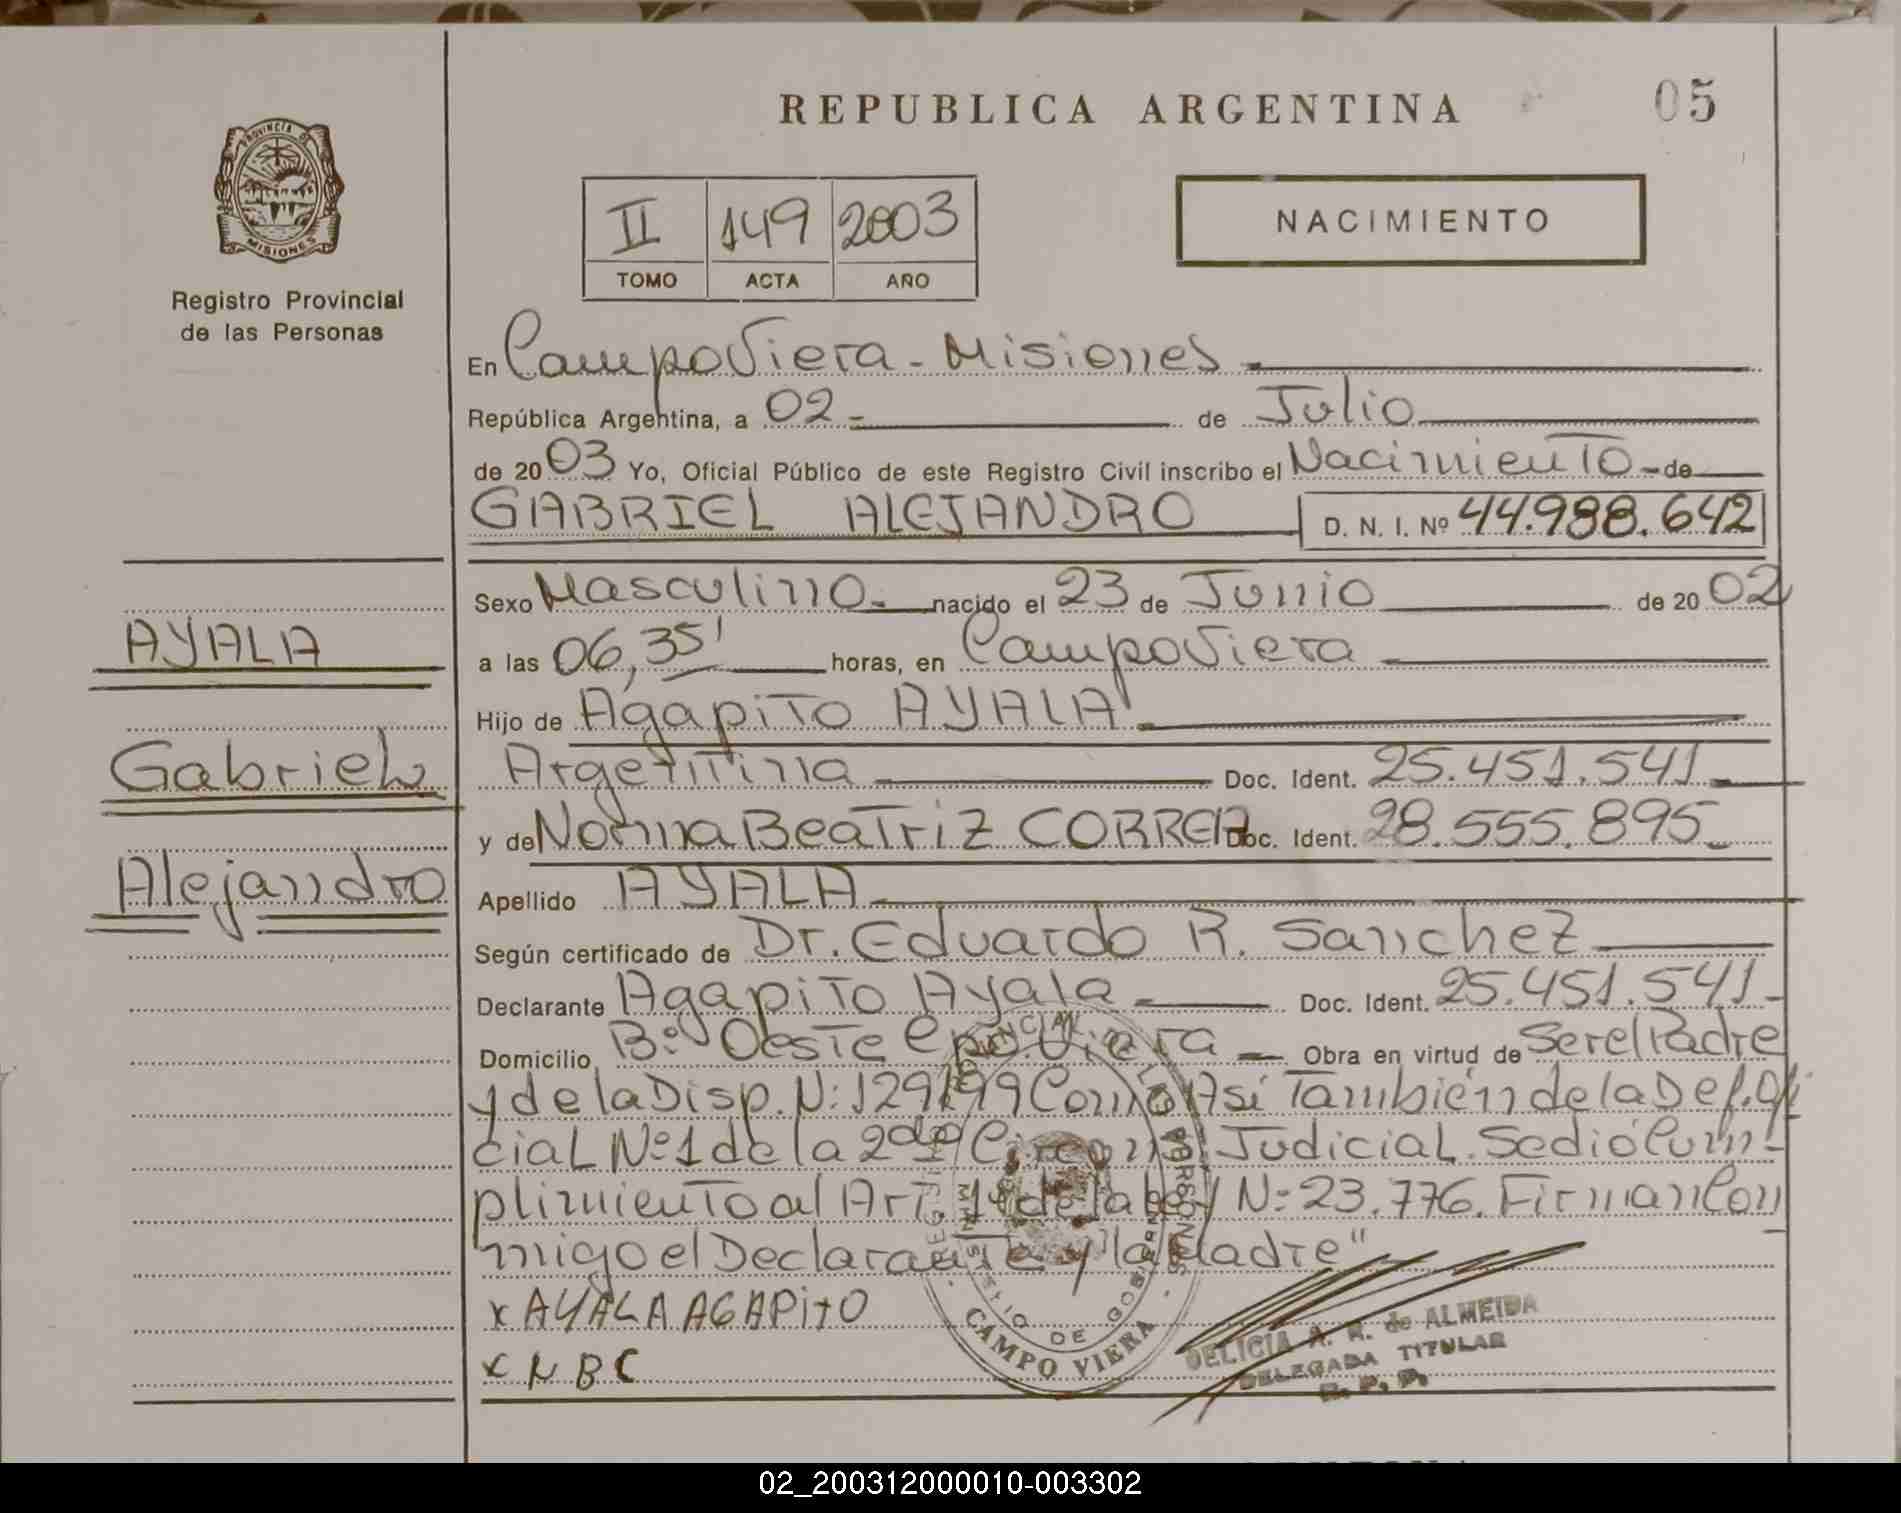 REPUBLICA ARGENTINA
05
PROVINCIA DE
MISIONES
Registro Provincial
de las Personas
II 149 2003
TOMO ACTA AÑO
NACIMIENTO
En Campo Viera - Misiones
República Argentina, a 02 de Julio
de 2003 Yo, Oficial Público de este Registro Civil inscribo el Nacimiento de
GABRIEL ALEJANDRO D. N. I. Nº 44.988.642
Sexo Masculino nacido el 23 de Junio de 2002
a las 06,35' horas, en Campo Viera
Hijo de Agapito AYALA
Argentina Doc. Ident. 25.451.541
y de Norma Beatriz CORREA Doc. Ident. 28.555.895
Apellido AYALA
Según certificado de Dr. Eduardo R. Sanchez
Declarante Agapito Ayala Doc. Ident. 25.451.541
Domicilio Bº Oeste Cpo. Viera Obra en virtud de Ser el Padre
y de la Disp. N: 129/99 Como Así También de la Def. Ofi
cial Nº 1 de la 2da Circons. Judicial. Se dió Cum-
plimiento al Art. 1º de la Ley N: 23.776. Firman Con
migo el Declarante y "la Madre"
x AYALA AGAPito
x N B C
AYALA
Gabriel
Alejandro
CAMPO VIERA
DELICIA A. R. de ALMEIDA
DELEGADA TITULAR
R. P. P.
02_200312000010-003302